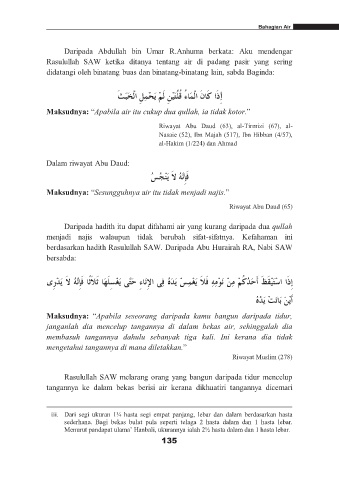 Bahagian Air
Daripada Abdullah bin Umar R.Anhuma berkata: Aku mendengar
Rasulullah SAW ketika ditanya tentang air di padang pasir yang sering
didatangi oleh binatang buas dan binatang-binatang lain, sabda Baginda:
إِذَا كَانَ الْمَاءُ قُلَّتَيْنِ لَمْ يَحْمِلِ الْخَبَثَ
Maksudnya: “Apabila air itu cukup dua qullah, ia tidak kotor.”
Riwayat Abu Daud (63), al-Tirmizi (67), al-
Nasaie (52), Ibn Majah (517), Ibn Hibban (4/57),
al-Hakim (1/224) dan Ahmad
Dalam riwayat Abu Daud:
فَإِنَّهُ لَا يَنْجُسُ
Maksudnya: “Sesungguhnya air itu tidak menjadi najis.”
Riwayat Abu Daud (65)
Daripada hadith itu dapat difahami air yang kurang daripada dua qullah
menjadi najis walaupun tidak berubah sifat-sifatnya. Kefahaman ini
berdasarkan hadith Rasulullah SAW. Daripada Abu Hurairah RA, Nabi SAW
bersabda:
إِذَا اسْتَيْقَظَ أَحَدُكُمْ مِنْ نَوْمِهِ فَلَا يَغْمِسْ يَدَهُ فِى الإِنَاءِ حَتَّى يَغْسِلَهَا ثَلَاثًا فَإِنَّهُ لَا يَدْرِى
أَيْنَ بَاتَتْ يَدُهُ
Maksudnya: “Apabila seseorang daripada kamu bangun daripada tidur,
janganlah dia mencelup tangannya di dalam bekas air, sehinggalah dia
membasuh tangannya dahulu sebanyak tiga kali. Ini kerana dia tidak
mengetahui tangannya di mana diletakkan.”
Riwayat Muslim (278)
Rasulullah SAW melarang orang yang bangun daripada tidur mencelup
tangannya ke dalam bekas berisi air kerana dikhuatiri tangannya dicemari
iii. Dari segi ukuran 1¼ hasta segi empat panjang, lebar dan dalam berdasarkan hasta
sederhana. Bagi bekas bulat pula seperti telaga 2 hasta dalam dan 1 hasta lebar.
Menurut pendapat ulama’ Hanbali, ukurannya ialah 2½ hasta dalam dan 1 hasta lebar.
135